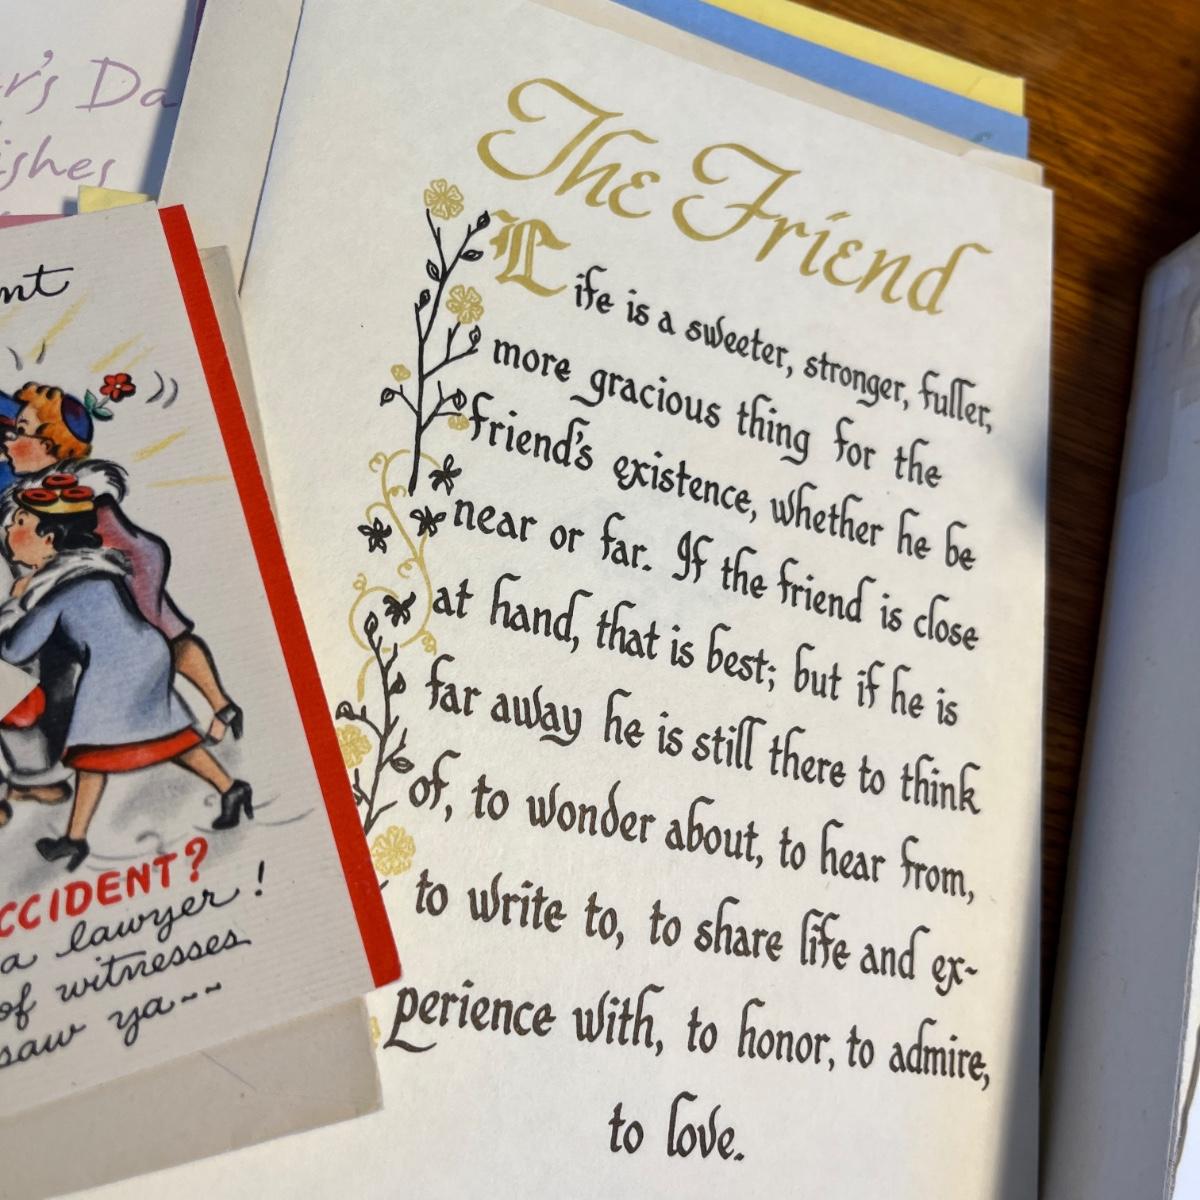 The Friend
Life is a sweeter, stronger, fuller,
more gracious thing for the
friend's existence, whether he be
near or far. If the friend is close
at hand, that is best; but if he is
far away he is still there to think
of, to wonder about, to hear from,
to write to, to share life and ex-
perience with, to honor, to admire,
to love.
a lawyer!
of witnesses
saw ya--